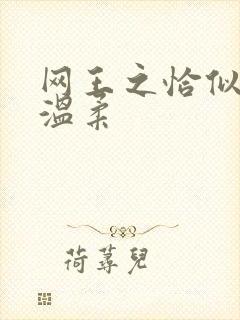 网王之恰似
温柔
荷蕁兒